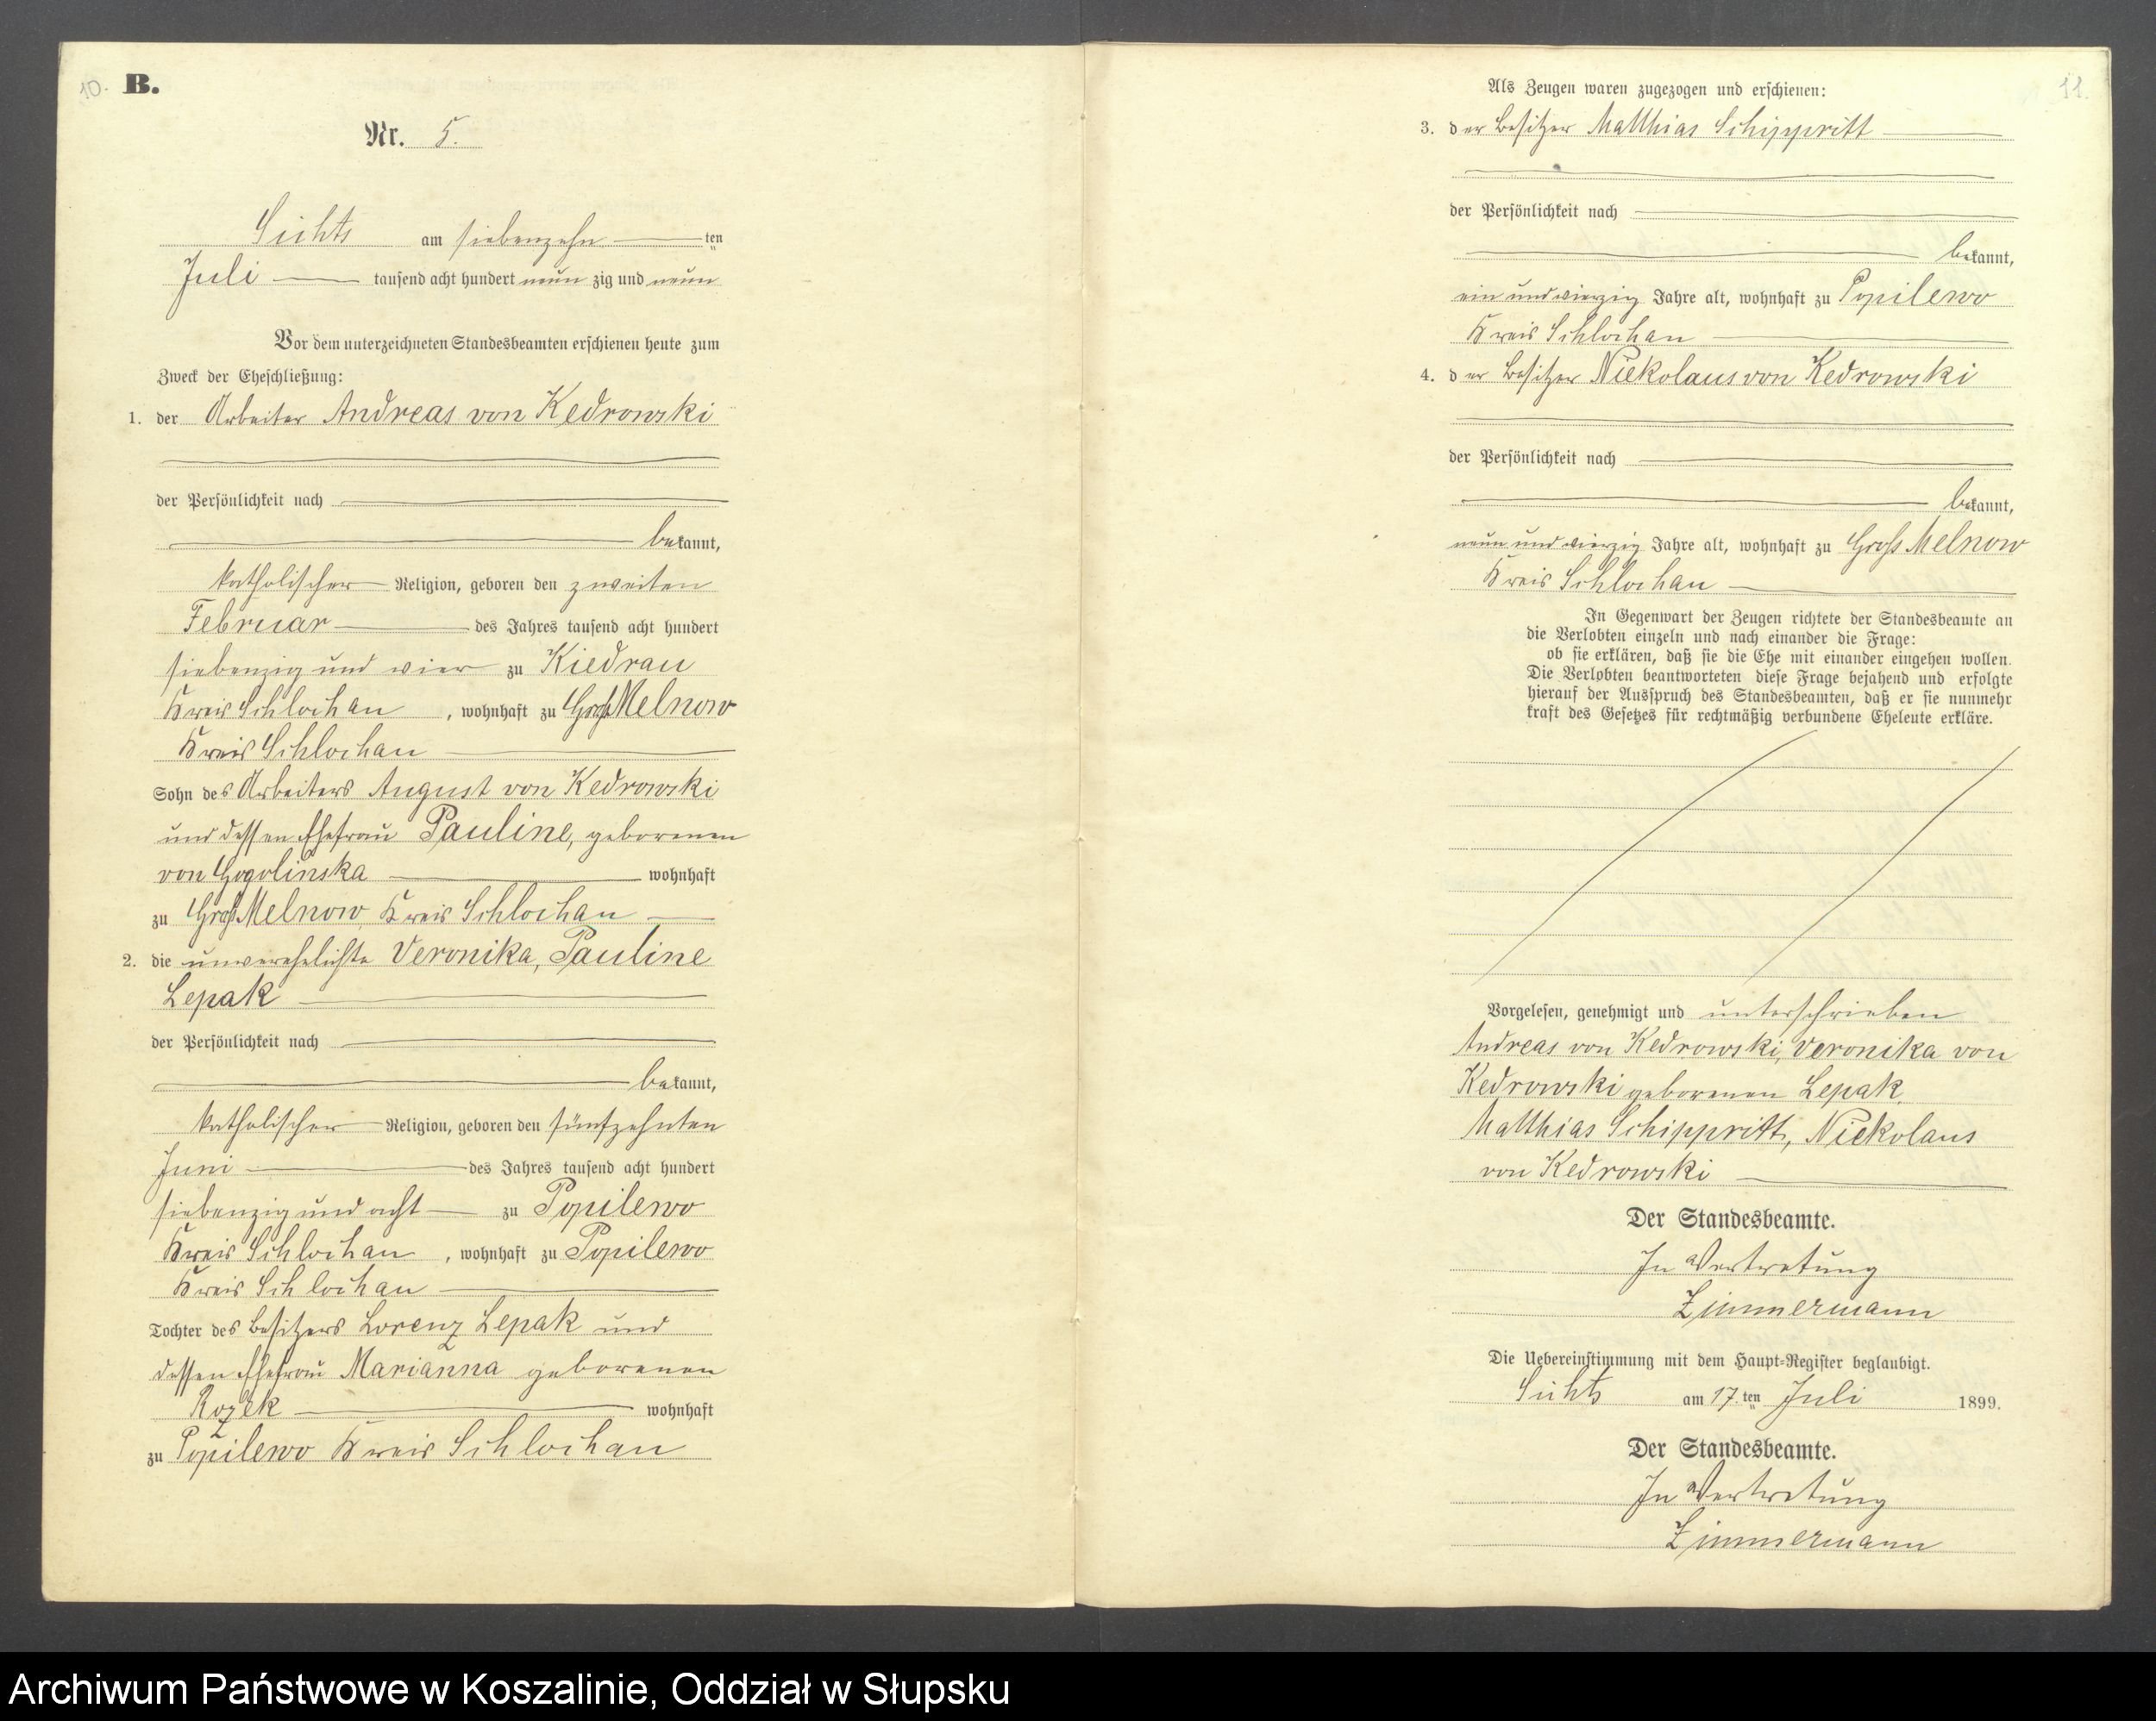 10. B.
Nr. 5.
Sichts am siebenzehn ten
Juli tausend acht hundert neun zig und neun
Vor dem unterzeichneten Standesbeamten erschienen heute zum
Zweck der Eheschließung:
1. der Arbeiter Andreas von Kedrowski
der Persönlichkeit nach
bekannt,
katholischer Religion, geboren den zweiten
Februar des Jahres tausend acht hundert
siebenzig und vier zu Kiedrau
Kreis Schlochau, wohnhaft zu Groß Melnow
Kreis Schlochau
Sohn des Arbeiters August von Kedrowski
und dessen Ehefrau Pauline, geborenen
von Gogolinska wohnhaft
zu Groß Melnow, Kreis Schlochau
2. die unverehelichte Veronika, Pauline
Lepak
der Persönlichkeit nach
bekannt,
katholischer Religion, geboren den fünfzehnten
Juni des Jahres tausend acht hundert
siebenzig und acht zu Popilewo
Kreis Schlochau, wohnhaft zu Popilewo
Kreis Schlochau
Tochter des Besitzers Lorenz Lepak und
dessen Ehefrau Marianna geborenen
Rozek wohnhaft
zu Popilewo Kreis Schlochau
11.
Als Zeugen waren zugezogen und erschienen:
3. der Besitzer Matthias Schippritt
der Persönlichkeit nach
bekannt,
ein und vierzig Jahre alt, wohnhaft zu Popilewo
Kreis Schlochau
4. der Besitzer Nickolaus von Kedrowski
der Persönlichkeit nach
bekannt,
neun und vierzig Jahre alt, wohnhaft zu Groß Melnow
Kreis Schlochau
In Gegenwart der Zeugen richtete der Standesbeamte an
die Verlobten einzeln und nach einander die Frage:
ob sie erklären, daß sie die Ehe mit einander eingehen wollen.
Die Verlobten beantworteten diese Frage bejahend und erfolgte
hierauf der Ausspruch des Standesbeamten, daß er sie nunmehr
kraft des Gesetzes für rechtmäßig verbundene Eheleute erkläre.
Vorgelesen, genehmigt und unterschrieben
Andreas von Kedrowski, Veronika von
Kedrowski geborenen Lepak,
Matthias Schippritt, Nickolaus
von Kedrowski
Der Standesbeamte.
In Vertretung
Zimmermann
Die Uebereinstimmung mit dem Haupt-Register beglaubigt.
Sichts am 17.ten Juli 1899.
Der Standesbeamte.
In Vertretung
Zimmermann
Archiwum Państwowe w Koszalinie, Oddział w Słupsku